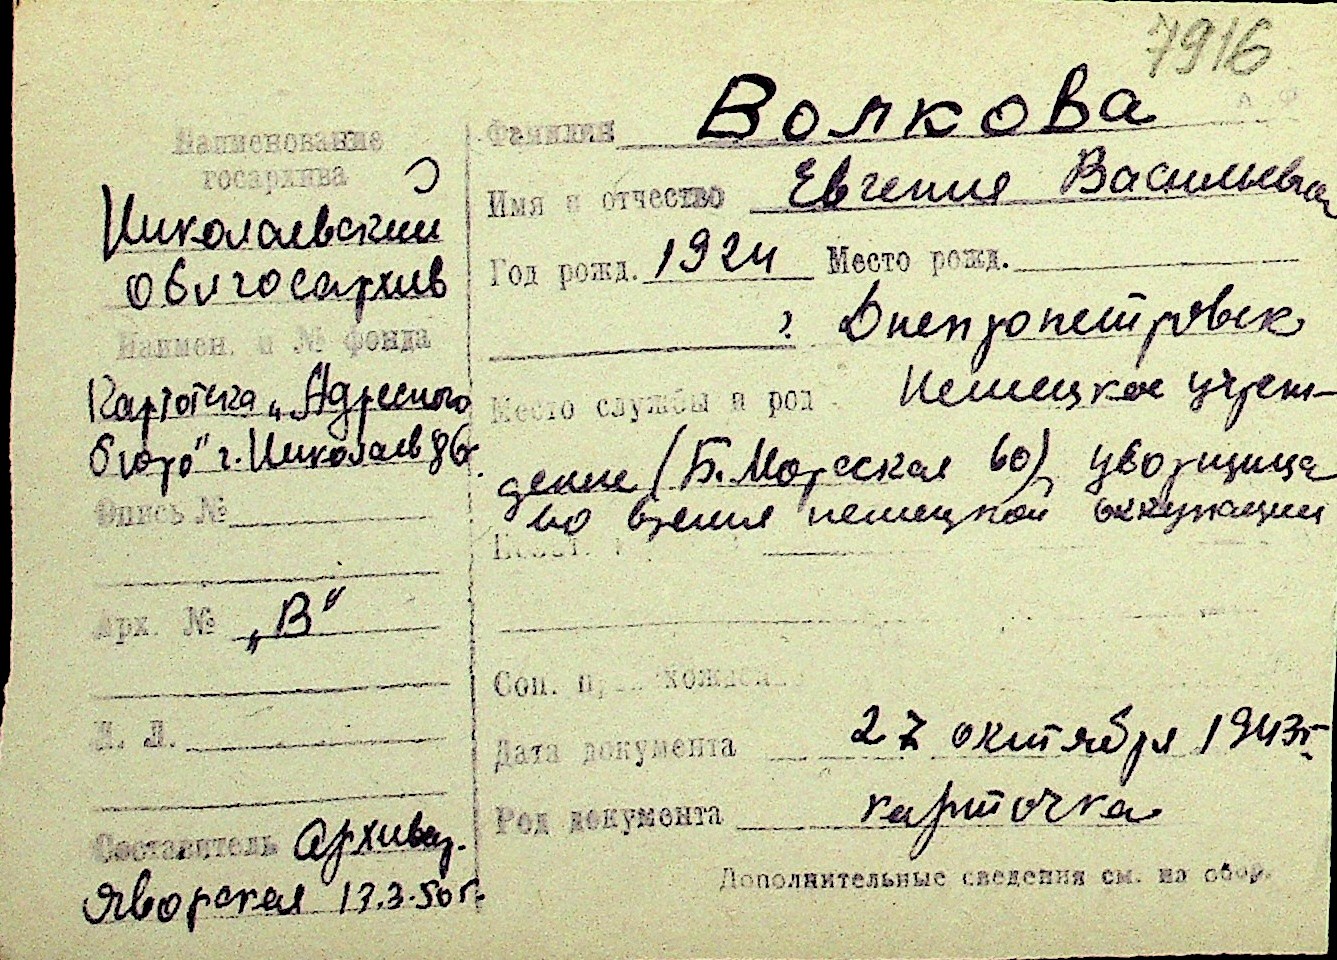 7916
А Ф
Наименование
госархива
Николаевский
облгосархив
Наимен. и № фонда
Картотека „Адресного
бюро" г. Николаев
Опись №
Арх. № „В"
Л. Л.
Составитель Архивар.
Яворская 13.3.50 г.
Фамилия Волкова
Имя и отчество Евгения Васильевна
Год рожд. 1924 Место рожд.
г. Днепропетровск
Место службы и род Немецкое учреж-
дение (Б. Морская 60) уборщица
во время немецкой оккупации
Соц. происхождение
Дата документа 27 октября 1943 г.
Род документа карточка
Дополнительные сведения см. на обор.